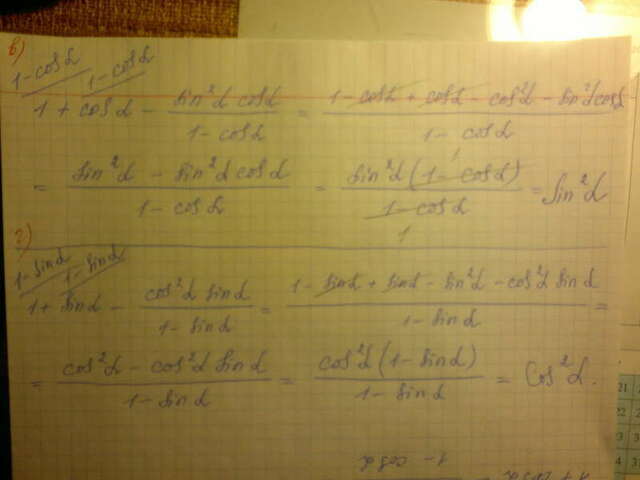 в)
1-cosα 1-cosα
1 + cosα - sin²α cosα / 1-cosα = 1-cosα + cosα - cos²α - sin²α cosα / 1-cosα
= sin²α - sin²α cosα / 1-cosα = sin²α (1-cosα) 1 / 1-cosα 1 = sin²α
г)
1-sinα 1-sinα
1 + sinα - cos²α sinα / 1-sinα = 1-sinα + sinα - sin²α - cos²α sinα / 1-sinα =
= cos²α - cos²α sinα / 1-sinα = cos²α (1-sinα) / 1-sinα = cos²α.
1- cosα
1 + cosα
21
22
23 3
4 3